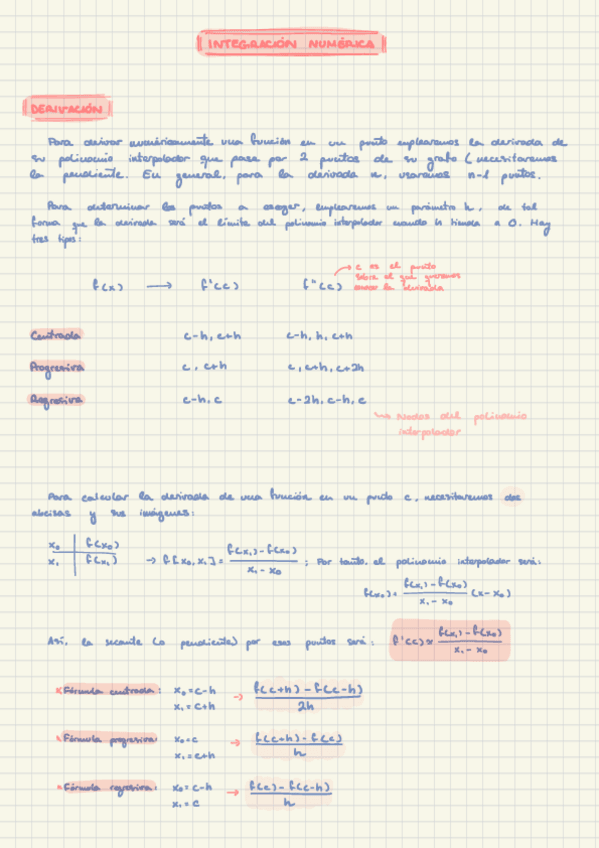 INTEGRACIÓN NUMÉRICA
DERIVACIÓN
Para derivar numéricamente una función en un punto emplearemos la derivada de
su polinomio interpolador que pasa por 2 puntos de su grafo (necesitaremos
la pendiente. En general, para la derivada n, usaremos n-1 puntos.
Para determinar los puntos a escoger, emplearemos un parámetro h, de tal
forma que la derivada será el límite del polinomio interpolador cuando h tienda a 0. Hay
tres tipos:
f(x) → f'(c) f''(c) → c es el punto
sobre el que queremos
la derivada
Centrada c-h, c+h c-h, h, c+h
Progresiva c, c+h c, c+h, c+2h
Regresiva c-h, c c-2h, c-h, c
↪ Nodos del polinomio
interpolador
Para calcular la derivada de una función en un punto c, necesitaremos dos
abcisas y sus imágenes:
x₀ | f(x₀)
x₁ | f(x₁) → f[x₀, x₁] = (f(x₁) - f(x₀)) / (x₁ - x₀) ; Por tanto, el polinomio interpolador será:
f(x₀) + (f(x₁) - f(x₀)) / (x₁ - x₀) (x - x₀)
Así, la secante (o pendiente) por esos puntos será: f'(c) ≈ (f(x₁) - f(x₀)) / (x₁ - x₀)
* Fórmula centrada: x₀ = c-h
x₁ = c+h → (f(c+h) - f(c-h)) / 2h
* Fórmula progresiva: x₀ = c
x₁ = c+h → (f(c+h) - f(c)) / h
* Fórmula regresiva: x₀ = c-h
x₁ = c → (f(c) - f(c-h)) / h